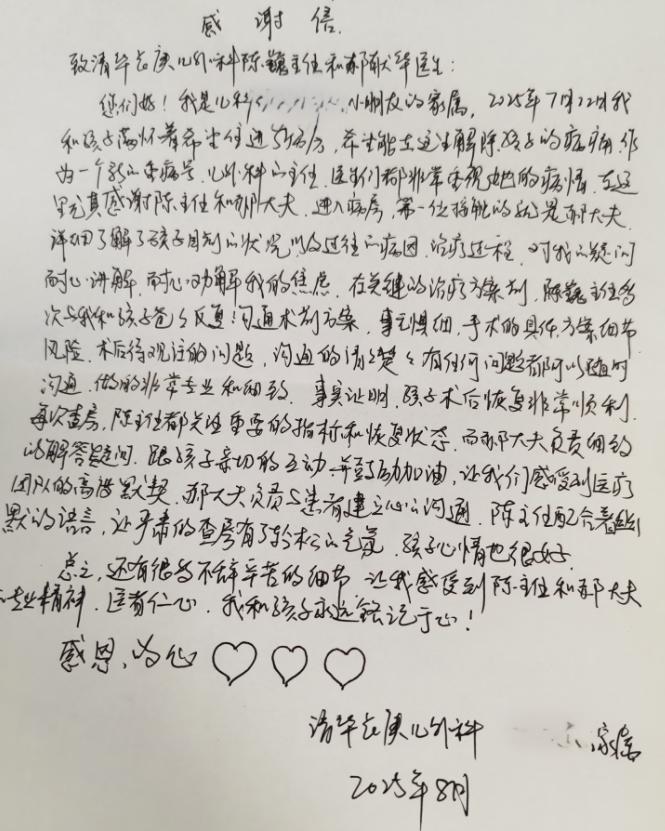 感谢信
致清华长庚儿外科陈巍主任和郝献华医生:
您们好!我是儿科 小朋友的家属,2025年7月22日我
和孩子满怀着希望住进 ,希望能在这里解除孩子的病痛,作
为一个 的重病号,儿外科的主任、医生们都非常重视她的病情,在这
里尤其感谢陈主任和郝大夫。进入病房,第一位接触的就是郝大夫,
详细了解了孩子目前的状况以及过往的病因、治疗过程,对我的疑问
耐心讲解,耐心劝解我的焦虑,在关键的治疗方案前,陈巍主任多
次与我和孩子爸爸反复沟通术前方案,事无惧细,手术的具体方案细节
风险、术后待观注的问题,沟通的清清楚楚,有任何问题都可以随时
沟通,做的非常专业和细致,事实证明,孩子术后恢复非常顺利,
每次查房,陈主任都关注重要的指标和恢复状态,而郝大夫负责细致
的解答疑问,跟孩子亲切的互动,并鼓励加油,让我们感受到医疗
团队的高度默契,郝大夫负责与患者建立心的沟通,陈主任配合着幽
默的语言,让严肃的查房有了轻松的气氛,孩子心情也很好。
总之,还有很多不辞辛苦的细节,让我感受到陈主任和郝大夫
的专业精神,医者仁心,我和孩子永远铭记于心!
感恩,的心♡♡♡
清华长庚儿外科 家属
2025年8月